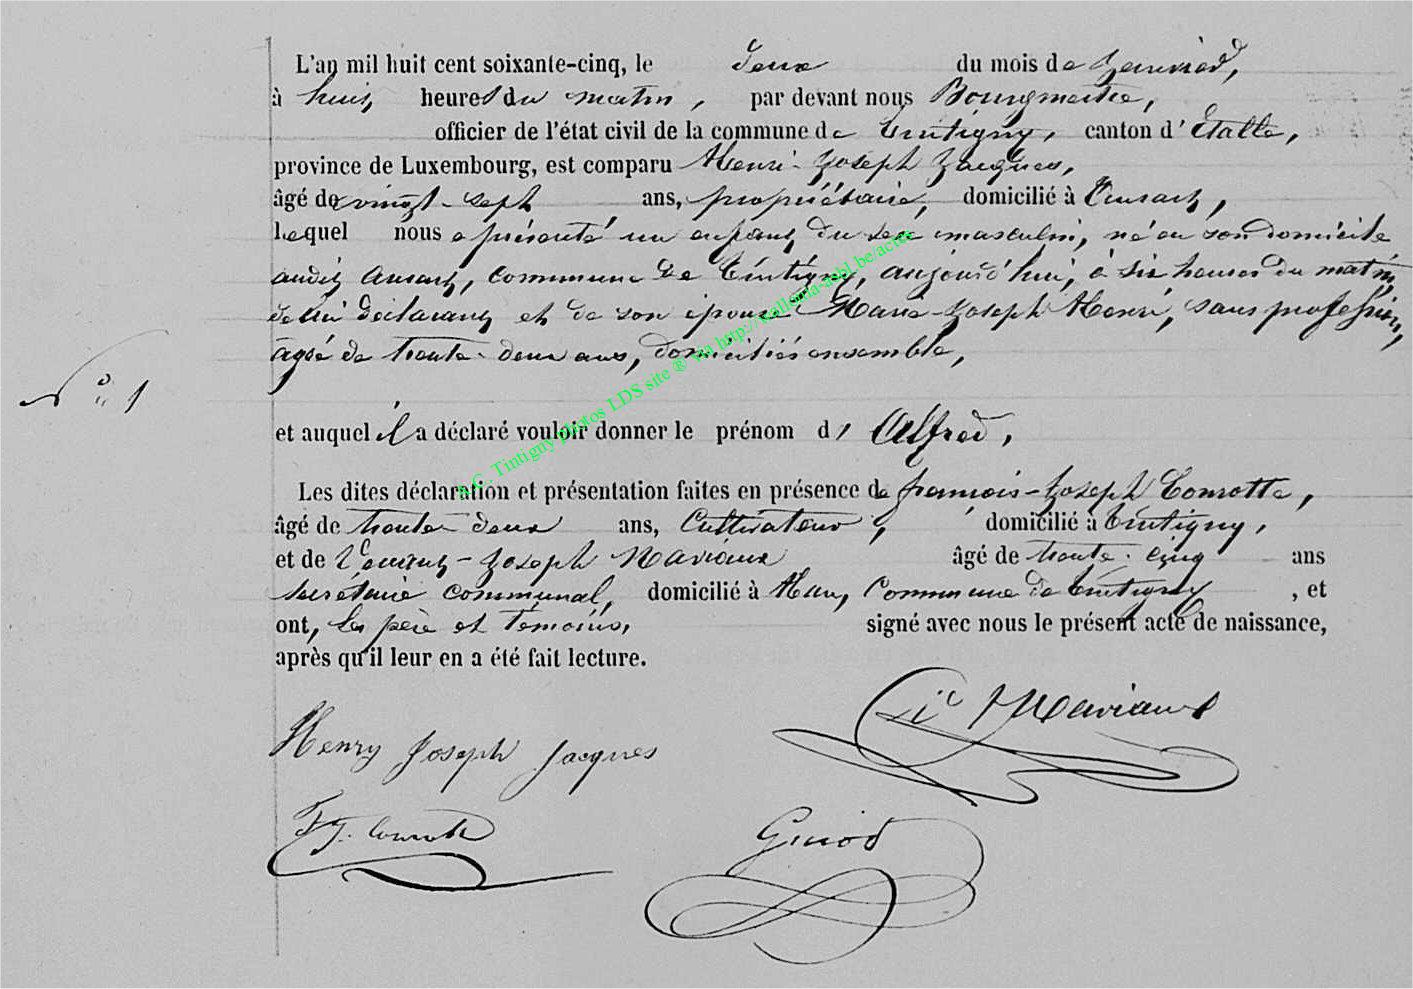 L'an mil huit cent soixante-cinq, le deux du mois de Janvier,
à huit heures du matin, par devant nous Bourgmestre,
officier de l'état civil de la commune de Tintigny, canton d'Etalle,
province de Luxembourg, est comparu Henri-Joseph Jacques,
âgé de vingt-sept ans, propriétaire, domicilié à Ansart,
Lequel nous a présenté un enfant du sexe masculin, né en son domicile
audit Ansart, commune de Tintigny, aujourd'hui, à six heures du matin,
de lui déclarant et de son épouse Marie-Joseph Henri, sans profession,
agée de trente-deux ans, domiciliés ensemble,
N° 1
et auquel il a déclaré vouloir donner le prénom d' Alfred,
Les dites déclaration et présentation faites en présence de françois-Joseph Conrotte,
âgé de trente-deux ans, Cultivateur, domicilié à Tintigny,
et de -Joseph Maviaux âgé de trente-cinq ans
secrétaire communal, domicilié à Han, Commune de Tintigny, et
ont, les père et témoins, signé avec nous le présent acte de naissance,
après qu'il leur en a été fait lecture.
Maviaux
Henry Joseph Jacques
F J. Conrotte
Giniod
A.C. Tintigny photos LDS site ® via http://wallonia-asbl.be/actes